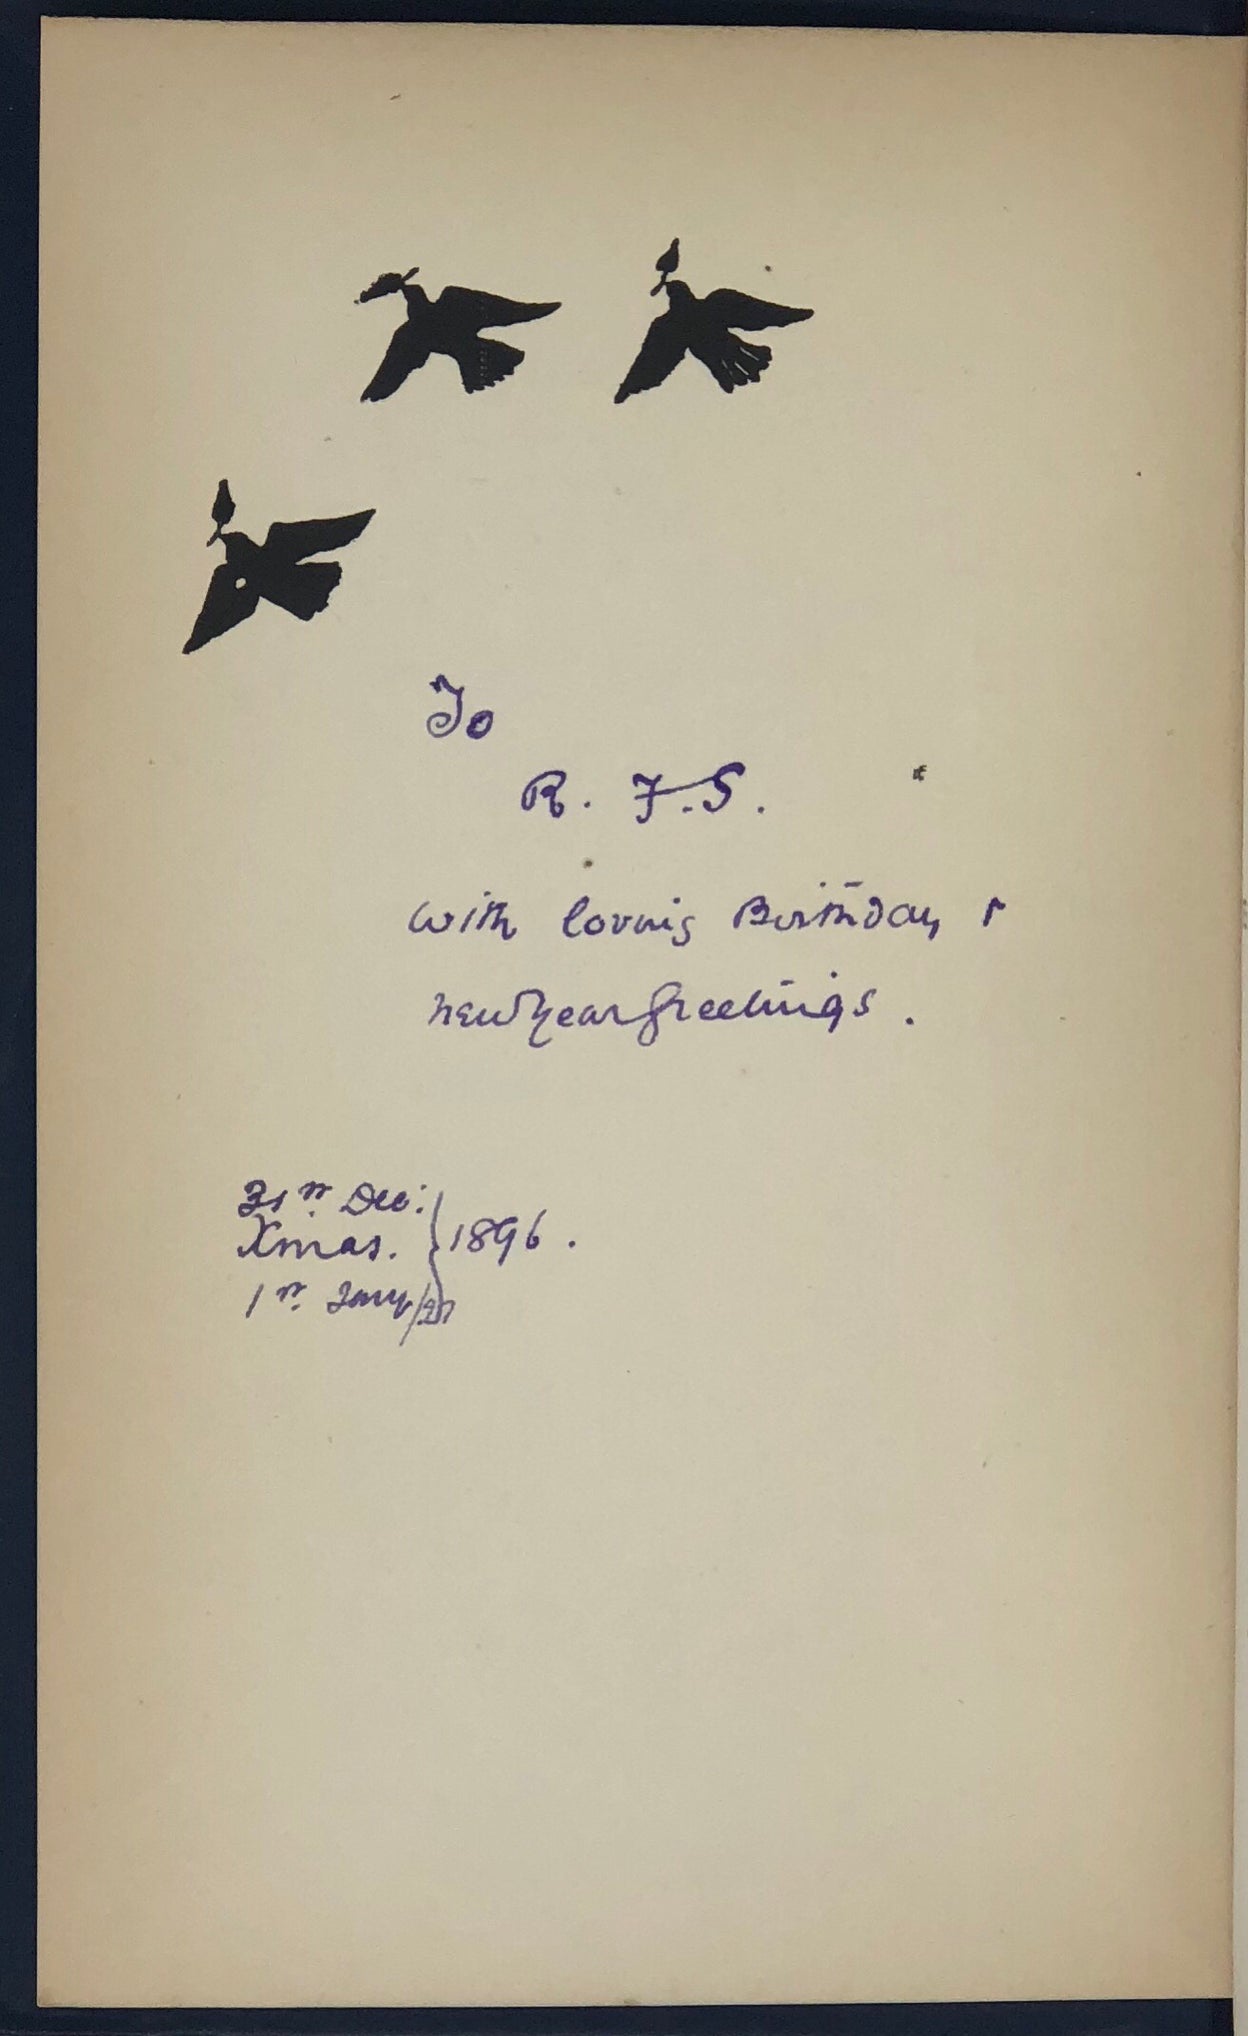 To
R. F. S.
with loving Birthday &
new Year Greetings.
31st Dec:
Xmas. } 1896.
1st Jany/97